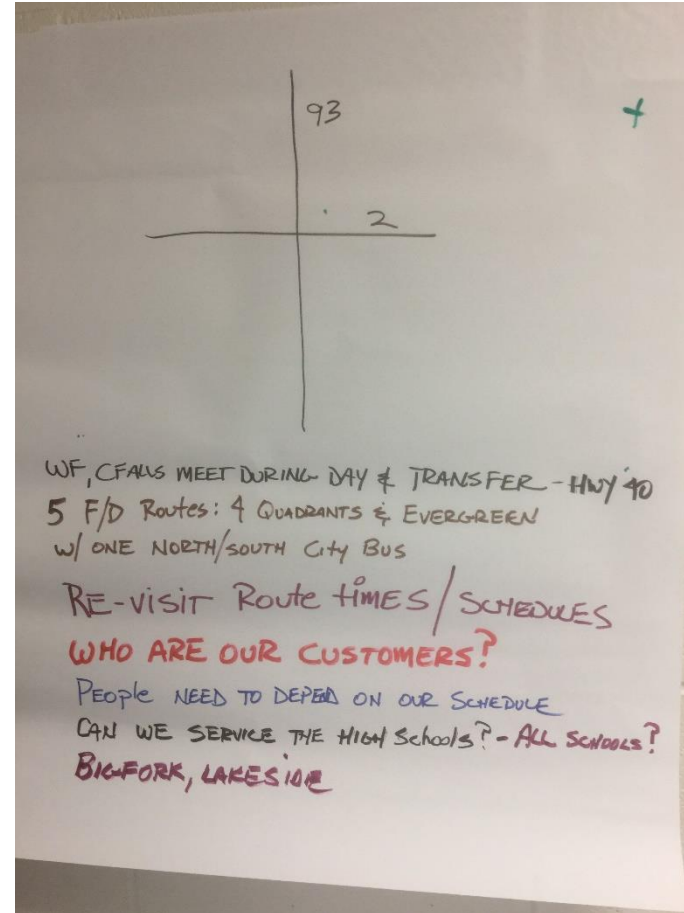 93
2
WF, CFALLS MEET DURING DAY & TRANSFER - HWY 40
5 F/D Routes: 4 QUADRANTS & EVERGREEN
w/ ONE NORTH/SOUTH City Bus
RE-VISIT Route tIMES / SCHEDULES
WHO ARE OUR CUSTOMERS?
PEOPle NEED TO DEPEND ON OUR SCHEDULE
CAN WE SERVICE THE HIGH Schools? - ALL SCHOOLS?
BIGFORK, LAKESIDE